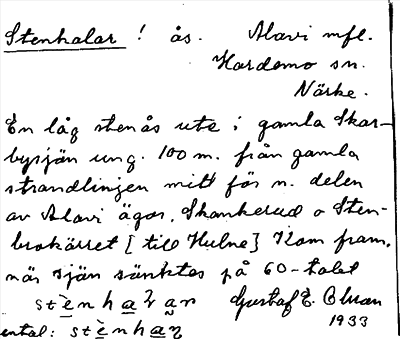 Stenhalar! ås. Alavi mfl.
Hardemo sn.
Närke.
En låg stenås ute i gamla Skar-
bysjön ung. 100 m. från gamla
strandlinjen mitt för n. delen
av Alavi ägor, Skankerud o Sten-
brokärret [till Hulne] Kom fram,
när sjön sänktes på 60-talet
Gustaf E.
1933
ental: